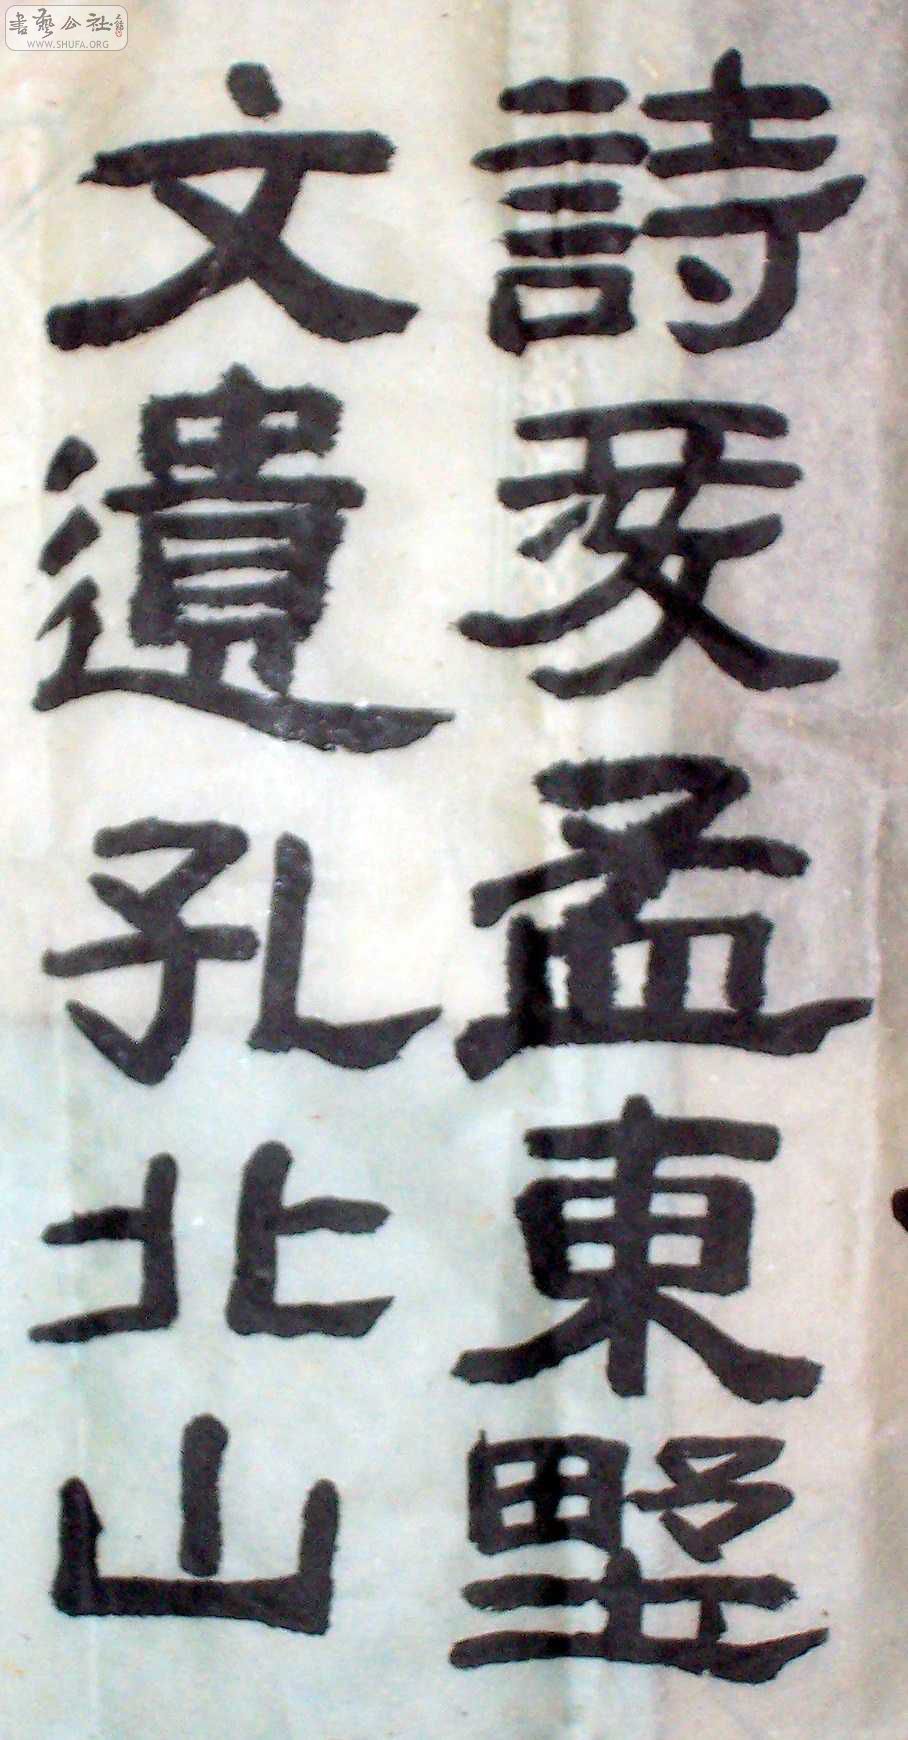 書藝公社
WWW.SHUFA.ORG
詩孟東野
文遺孔北山